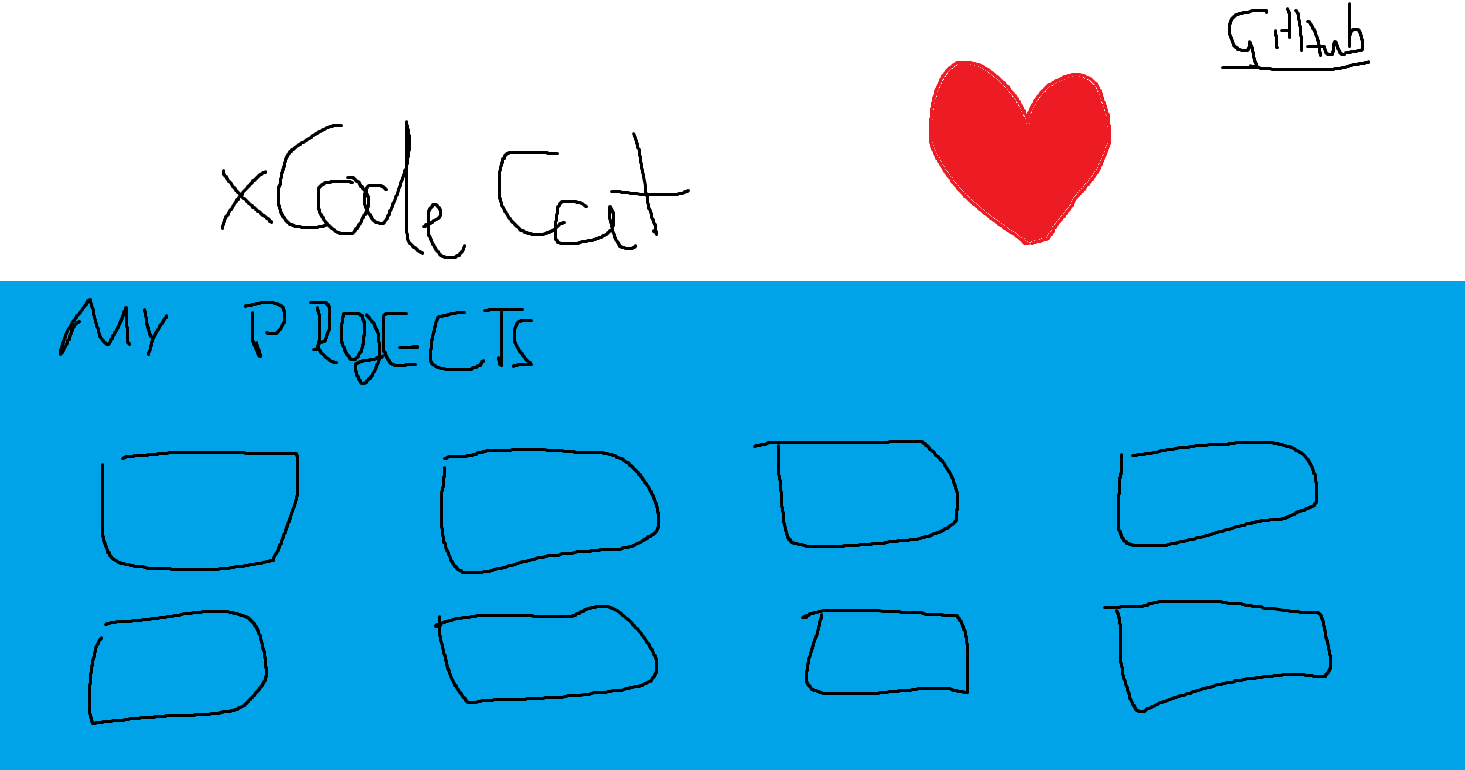 GitHub
xCodeCat
MY PROJECTS